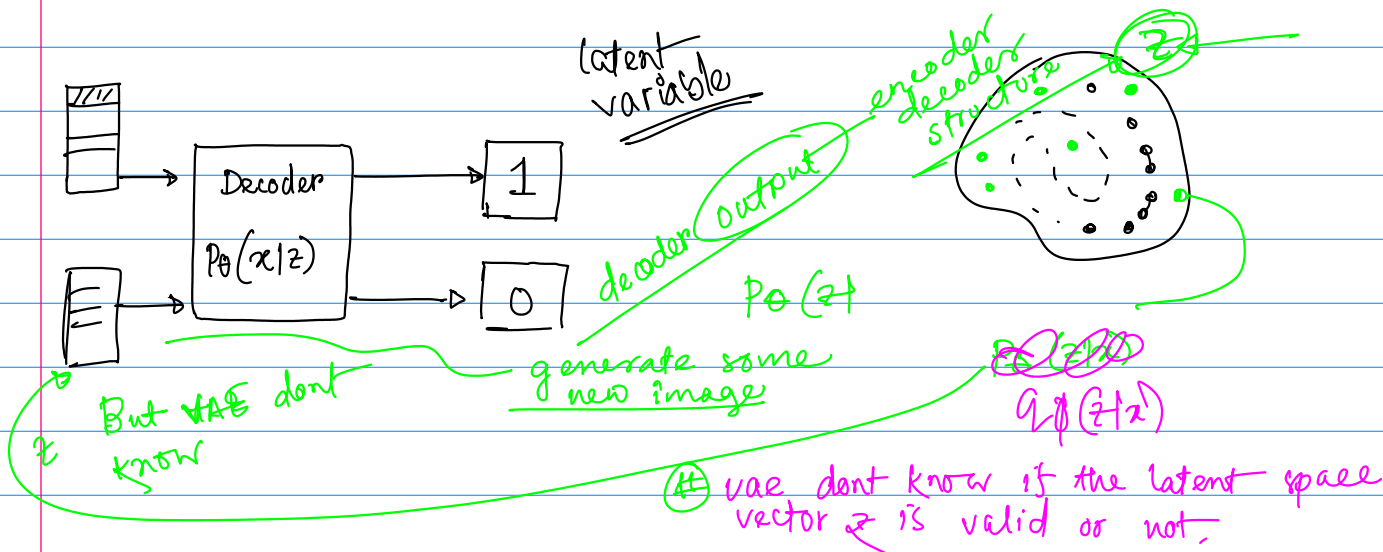 latent
variable
encoder
decoder
structure
z
Decoder
Pθ(x|z)
1
0
decoder output
Pθ(z|
generate some
new image
But VAE dont
know
z
qϕ(z|x)
# vae dont know if the latent space
vector z is valid or not.